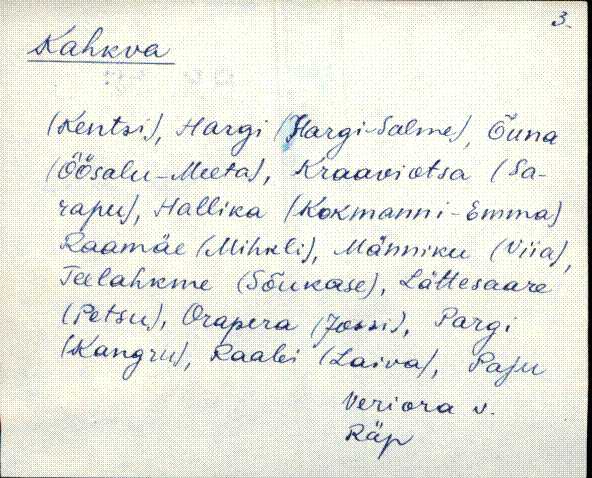 3.
Kahkva
(Kentsi), Hargi (Hargi-Salme), Õuna
(Öösalu-Meeta), Kraaviotsa (Sa-
rapu), Hallika (Kokmanni-Emma)
Raamäe (Mihkli), Männiku (Viia),
Teelahkme (Sõukase), Lättesaare
(Petsu), Orapera (Jossi), Pargi
(Kangru), Raabi (Laiva), Paju
Veriora v.
Räp